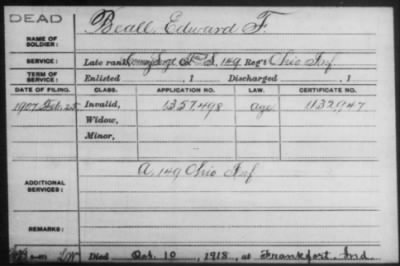 DEAD
NAME OF SOLDIER: Beall, Edward F.
SERVICE: Late rank, Serg't F & S, 149 Reg't Ohio Inf
TERM OF SERVICE: Enlisted , 1 Discharged , 1
DATE OF FILING. CLASS. APPLICATION NO. LAW. CERTIFICATE NO.
1907 Feb. 25 Invalid, 1357498 Age 1132947
Widow,
Minor,
ADDITIONAL SERVICES: A. 149 Ohio Inf
REMARKS:
Died Oct. 10, 1918, at Frankfort, Ind.